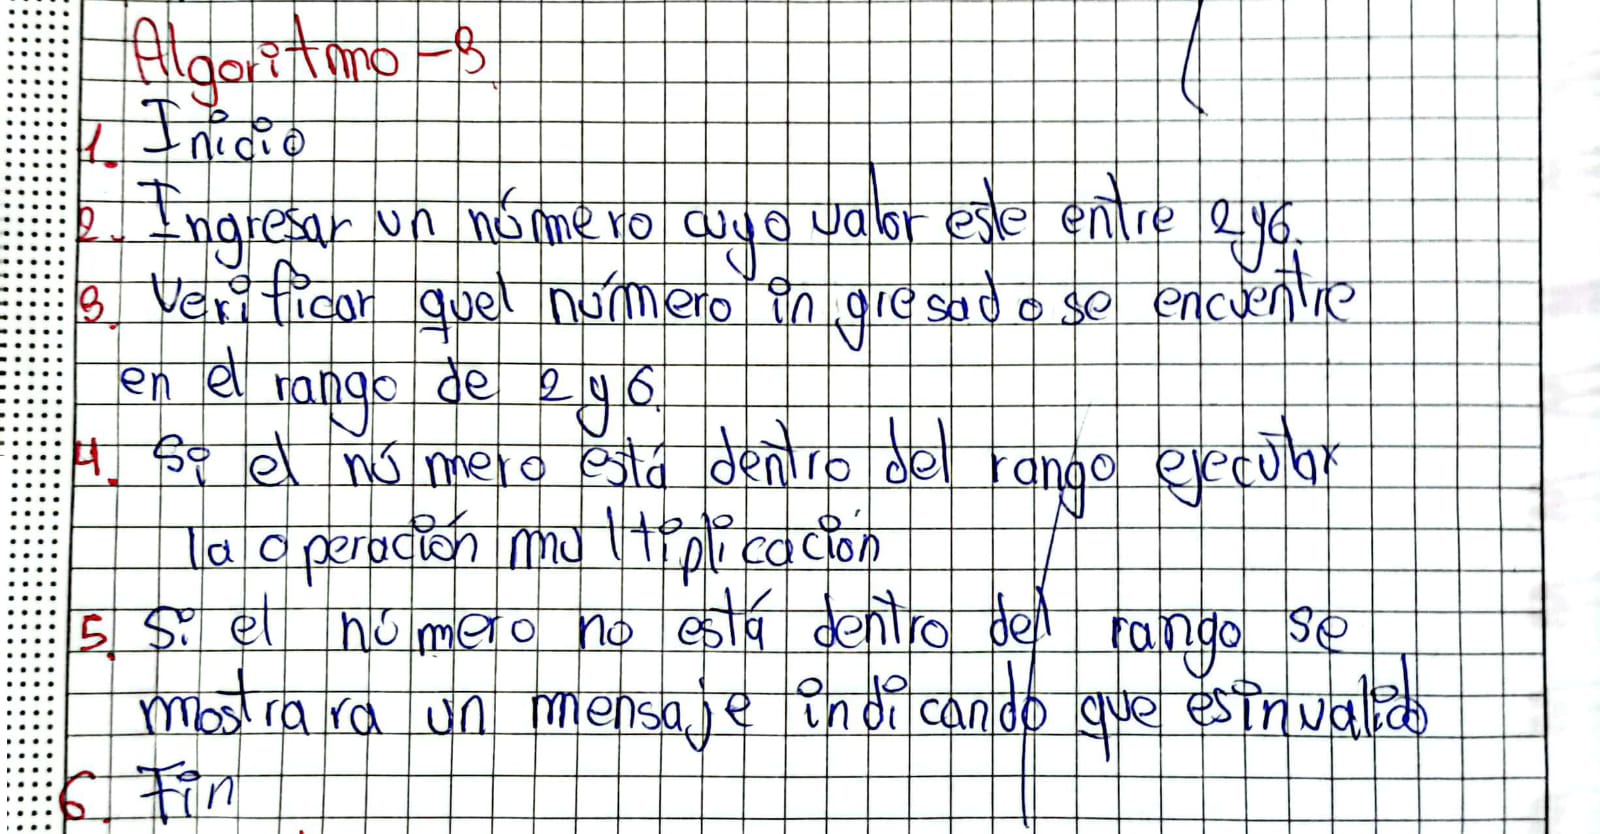 Algoritmo-3
1. Inicio
2. Ingresar un número cuyo valor este entre 2 y 6.
3. Verificar quel número ingresado se encuentre
en el rango de 2 y 6.
4. Si el número está dentro del rango ejecutar
la operación multiplicación
5. Si el número no está dentro del rango se
mostrara un mensaje indicando que es invalido
6. Fin